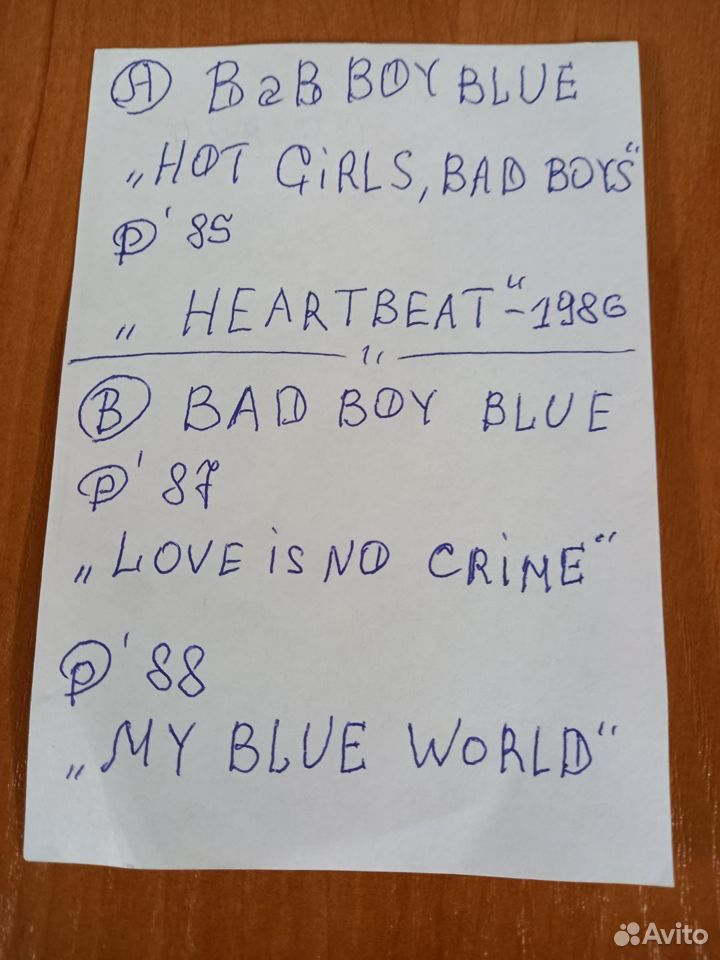 Ⓐ BaB BOY BLUE
„HOT GiRLS, BAD BOYS“
Ⓟ'85
„HEARTBEAT“-1986
Ⓑ BAD BOY BLUE
Ⓟ'87
„LOVE iS NO CRiME“
Ⓟ'88
„MY BLUE WORLD“
Avito